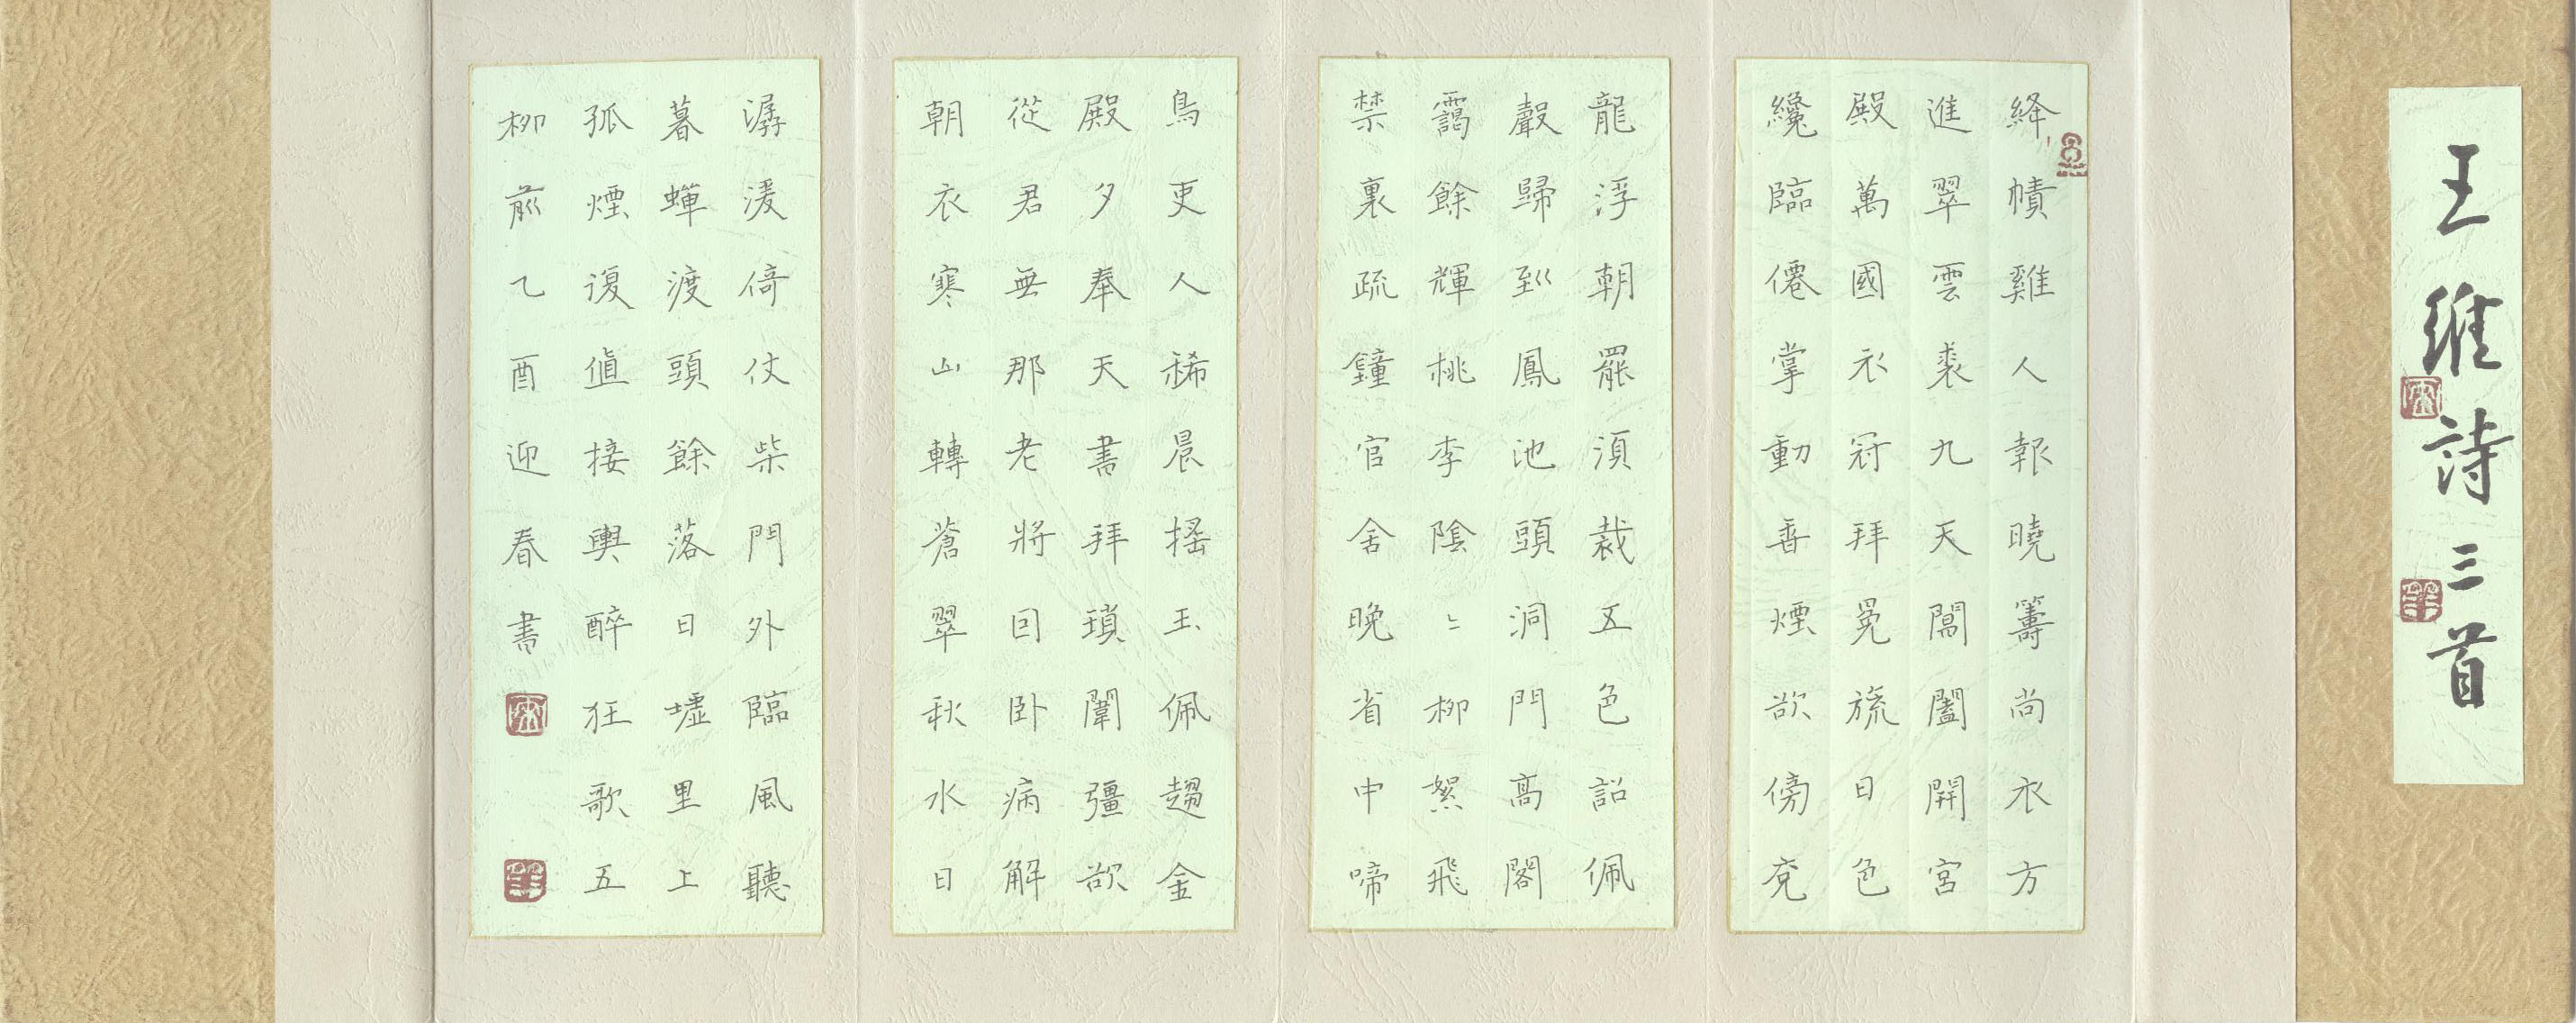 王維詩三首
絳幘雞人報曉籌尚衣方
進翠雲裘九天閶闔開宮
殿萬國衣冠拜冕旒日色
纔臨僊掌動香煙欲傍袞
龍浮朝罷須裁五色詔佩
聲歸到鳳池頭洞門高閣
靄餘輝桃李陰〻柳絮飛
禁裏疏鐘官舍晚省中啼
鳥吏人稀晨搖玉佩趨金
殿夕奉天書拜瑣闈彊欲
從君無那老將回卧病解
朝衣寒山轉蒼翠秋水日
潺湲倚仗柴門外臨風聽
暮蟬渡頭餘落日墟里上
孤煙復值接輿醉狂歌五
柳前乙酉迎春書